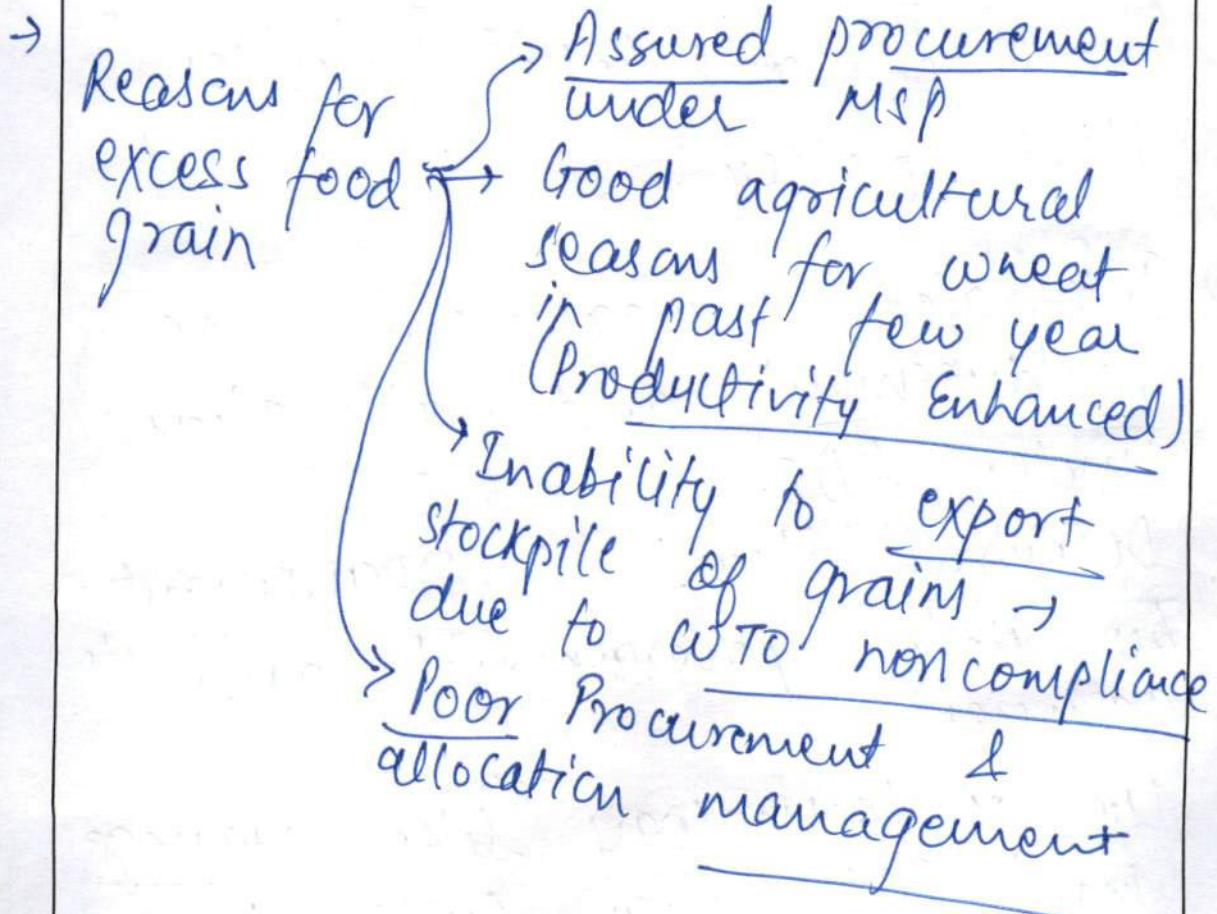 → Reasons for
excess food
grain
→ Assured procurement
under MSP
→ Good agricultural
seasons for wheat
in past few year
(Productivity Enhanced)
→ Inability to export
stockpile of grains →
due to WTO noncompliance
→ Poor Procurement &
allocation management